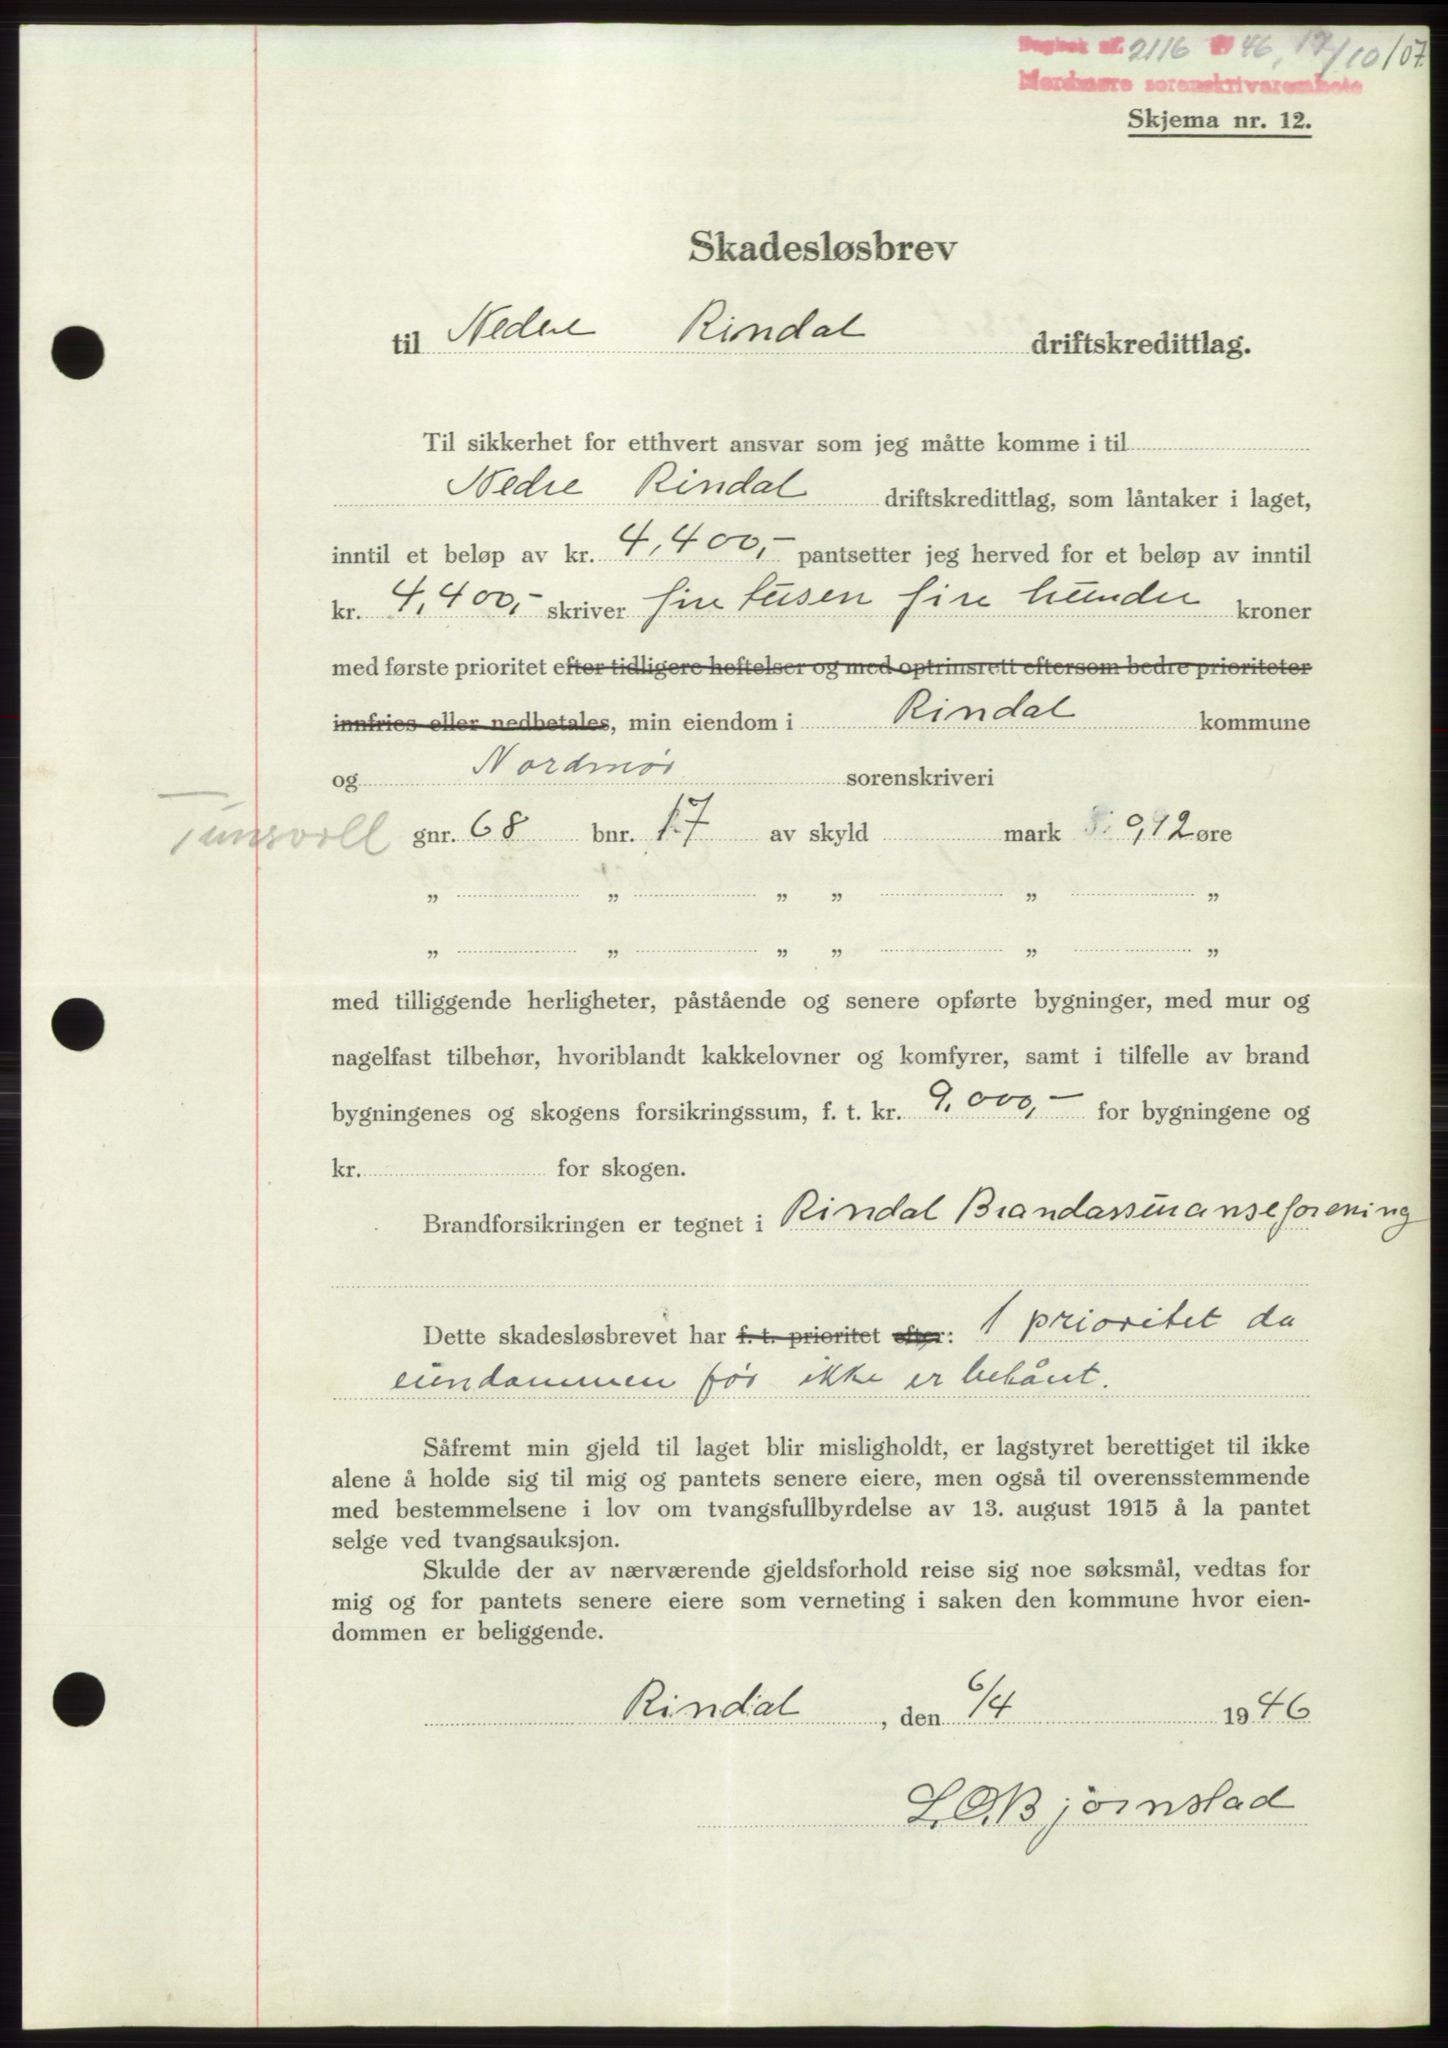 Dagbok nr. 2116 46, 17/10 107
Nordmøre sorenskrivarembete
Skjema nr. 12.
Skadesløsbrev
til Nedre Rindal driftskredittlag.
Til sikkerhet for etthvert ansvar som jeg måtte komme i til
Nedre Rindal driftskredittlag, som låntaker i laget,
inntil et beløp av kr. 4,400,- pantsetter jeg herved for et beløp av inntil
kr. 4,400,- skriver fire tusen fire hundre kroner
med første prioritet efter tidligere heftelser og med optrinsrett eftersom bedre prioriteter
innfries eller nedbetales, min eiendom i Rindal kommune
og Nordmør sorenskriveri
Tunsvoll gnr. 68 bnr. 17 av skyld mark 0,92 øre
„ „ „ „ „ „
„ „ „ „ „ „
med tilliggende herligheter, påstående og senere opførte bygninger, med mur og
nagelfast tilbehør, hvoriblandt kakkelovner og komfyrer, samt i tilfelle av brand
bygningenes og skogens forsikringssum, f. t. kr. 9.000,- for bygningene og
kr. for skogen.
Brandforsikringen er tegnet i Rindal Brandassuranseforening
Dette skadesløsbrevet har f. t. prioritet efter: 1 prioritet da
eiendommen før ikke er behånt.
Såfremt min gjeld til laget blir misligholdt, er lagstyret berettiget til ikke
alene å holde sig til mig og pantets senere eiere, men også til overensstemmende
med bestemmelsene i lov om tvangsfullbyrdelse av 13. august 1915 å la pantet
selge ved tvangsauksjon.
Skulde der av nærværende gjeldsforhold reise sig noe søksmål, vedtas for
mig og for pantets senere eiere som verneting i saken den kommune hvor eien-
dommen er beliggende.
Rindal, den 6/4 1946
L.O.Bjørnstad